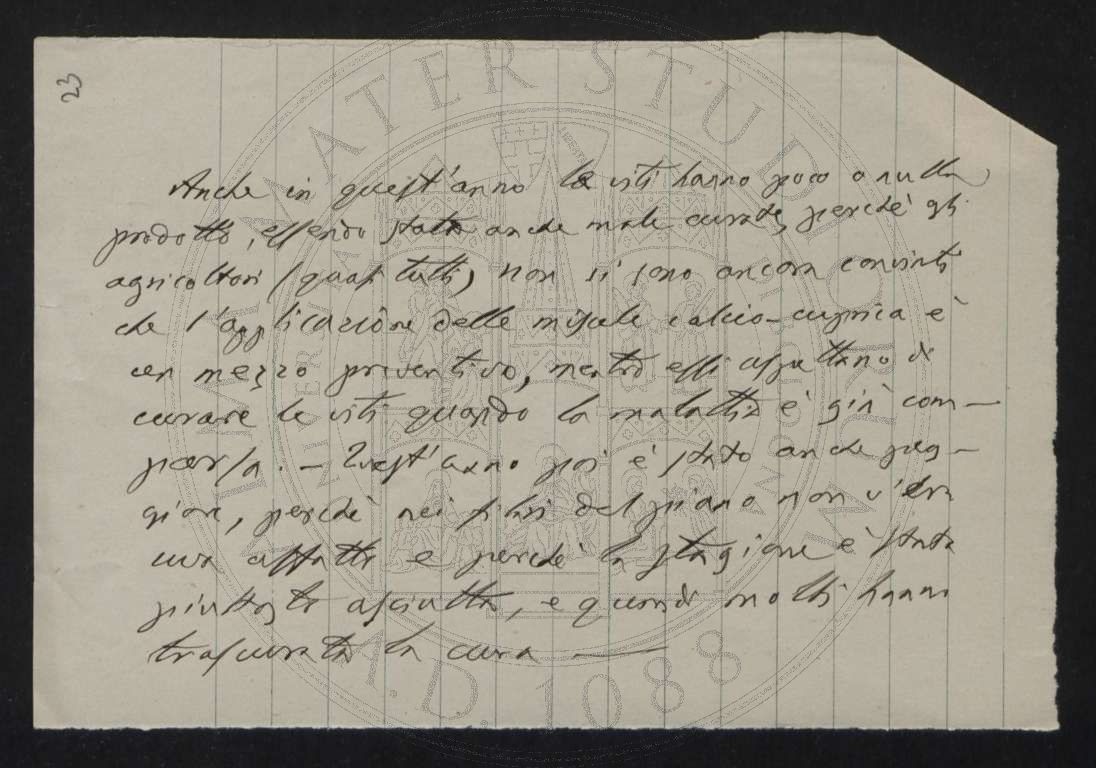 23
Anche in quest'anno le viti hanno poco o nulla
prodotto, essendo state anche male curate, perchè gli
agricoltori (quasi tutti) non si sono ancora convinti
che l'applicazione delle miscele calcio-cuprica è
un mezzo preventivo, mentre essi aspettano di
curare le viti quando la malattia è già com-
parsa. – Quest'anno poi è stato anche peg-
giore, perchè nei filari del piano non v'era
uva affatto e perchè la stagione è stata
piuttosto asciutta, e quindi molti hanno
trascurata la cura —
ALMA MATER STUDIORUM
A.D. 1088